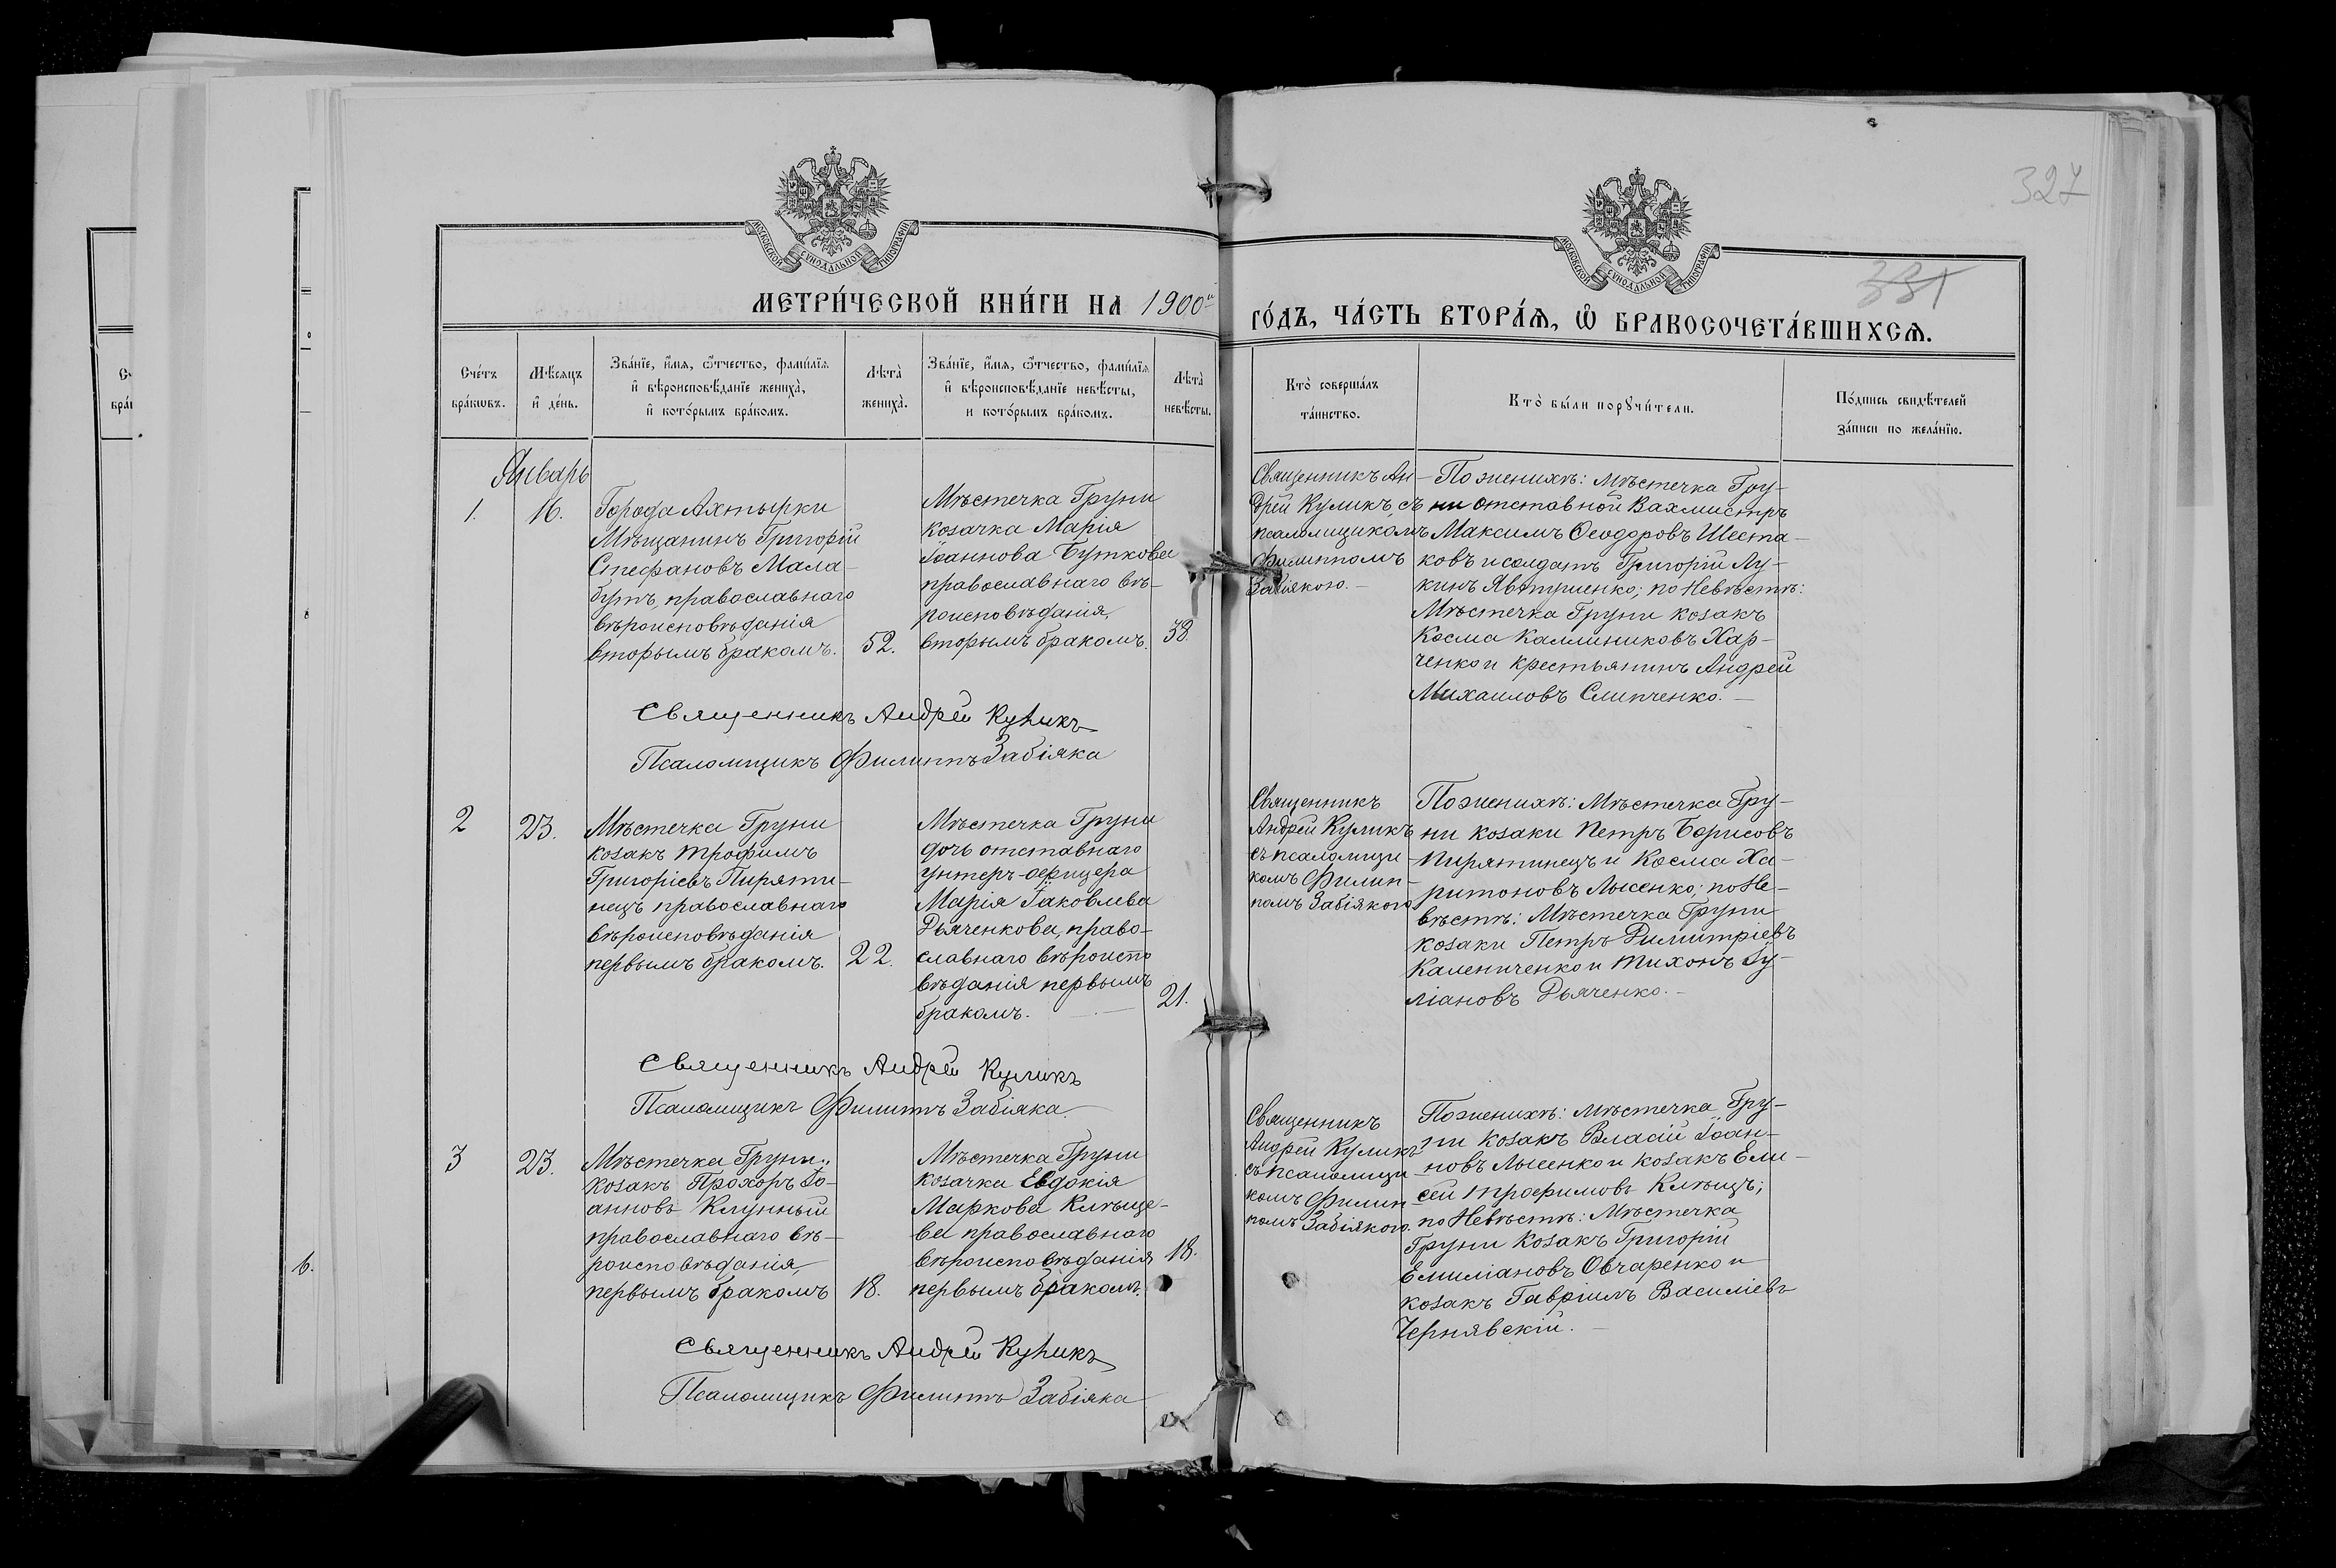 327
331
МОСКОВСКОЙ СУНОДАЛЬНОЙ ТИПОГРАФІИ
МОСКОВСКОЙ СУНОДАЛЬНОЙ ТИПОГРАФІИ
МЕТРИ́ЧЕСКОЙ КНИ́ГИ НА 1900й
ГО́ДЪ, ЧА́СТЬ ВТОРА́Я, Ѽ БРАКОСОЧЕТА́ВШИХСЯ.
Сче́тъ
бра́кѡвъ.
Мѣ́сяцъ
и҆ де́нь.
Зва́нїе, и҆́мя, ѻ҆́тчество, фами́лїя
и҆ вѣроисповѣ́данїе жениха̀,
и҆ кото́рымъ бра́комъ.
Лѣта̀
жениха̀.
Зва́нїе, и҆́мя, ѻ҆́тчество, фами́лїя
и҆ вѣроисповѣ́данїе невѣ́сты,
и кото́рымъ бра́комъ.
Лѣта̀
невѣ́сты.
Кто̀ соверша́лъ
та́инство.
Кто̀ бы́ли порꙋчи́тели.
По́дпись свидѣ́телей
за́писи по жела́нїю.
Январь
1.
16.
Города Ахтырки
Мѣщанинъ Григорій
Стефановъ Мала-
бутъ, православнаго
вѣроисповѣданія
вторымъ бракомъ.
52.
Мѣстечка Груни
козачка Марія
Іоаннова Буткова
православнаго вѣ-
роисповѣданія,
вторымъ бракомъ.
38.
Священникъ Ан-
дрей Куликъ, съ
псаломщикомъ
Филиппомъ
Забіякою.-
По женихѣ: мѣстечка Гру-
ни отставной Вахмистръ
Максимъ Ѳеодоровъ Шеста-
ковъ и солдатъ Григорій Лу-
кинъ Явтушенко; по Невѣстѣ:
Мѣстечка Груни козакъ
Косма Каллиниковъ Хар-
ченко и крестьянинъ Андрей
Михаиловъ Слипченко.-
Священникъ Андрей Куликъ
Псаломщикъ Филиппъ Забіяка
2
23.
Мѣстечка Груни
козакъ Трофимъ
Григоріевъ Пиряти-
нецъ православнаго
вѣроисповѣданія
первымъ бракомъ.
22.
Мѣстечка Груни
дочь отставнаго
унтеръ-офицера
Марія Іаковлева
Дьяченкова, право-
славнаго вѣроиспо
вѣданія первымъ
бракомъ.
21.
Священникъ
Андрей Куликъ
съ псаломщи-
комъ Филип-
помъ Забіякого
По женихѣ: Мѣстечка Гру-
ни козаки Петръ Борисовъ
Пирятинецъ и Косма Ха-
ритоновъ Лысенко; по Не-
вѣстѣ: Мѣстечка Груни
козаки Петръ Димитріевъ
Калениченко и Тихонъ Іу-
ліановъ Дьяченко.-
Священникъ Андрей Куликъ
Псаломщикъ Филиппъ Забіяка.
3
23.
Мѣстечка Груни
козакъ Прохоръ Іо-
анновъ Клунный
православнаго вѣ-
роисповѣданія,
первымъ бракомъ
18.
Мѣстечка Груни
козачка Евдокія
Маркова Клѣще-
ва православнаго
вѣроисповѣданія
первымъ бракомъ.
18.
Священникъ
Андрей Куликъ
съ псаломщи-
комъ Филип-
помъ Забіякого.
По женихѣ: мѣстечка Гру-
ни козакъ Власій Іоан-
новъ Лысенко и козакъ Ели-
сей Трофимовъ Клѣщъ;
по Невѣстѣ: Мѣстечка
Груни козакъ Григорій
Емиліановъ Овчаренко и
козакъ Гавріилъ Василіевъ
Чернявскій.-
Священникъ Андрей Куликъ
Псаломщикъ Филиппъ Забіяка
6.